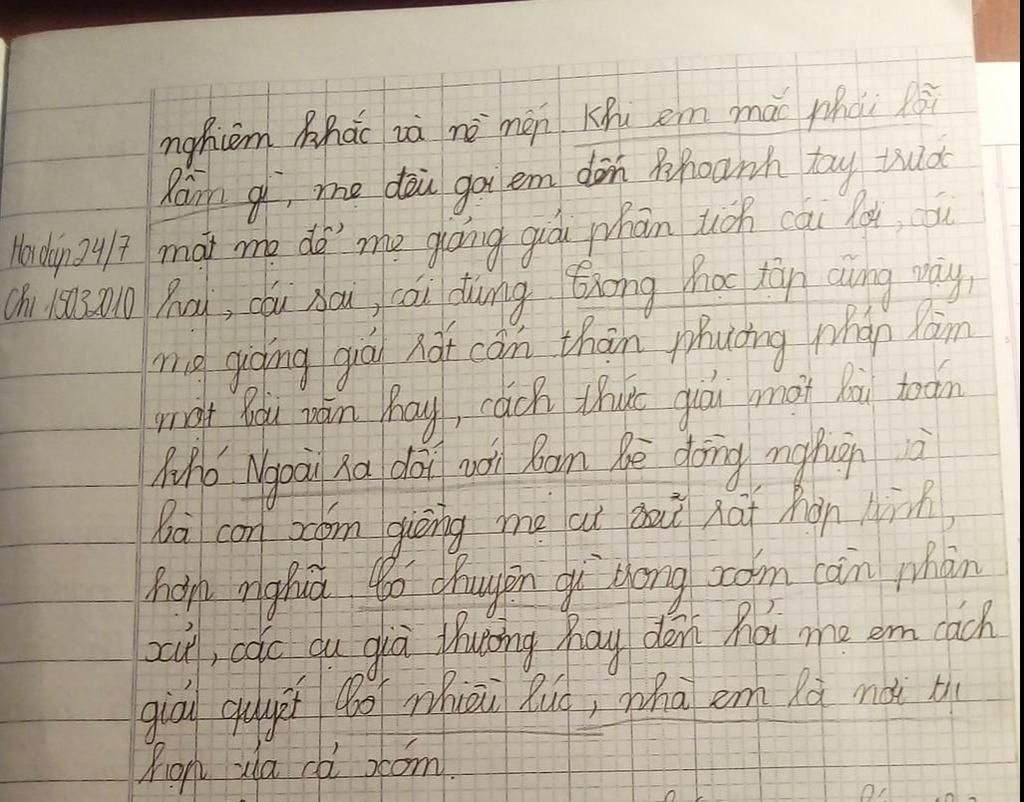 nghiêm khắc và nề nếp. Khi em mắc phải lỗi
lầm gì, mẹ đều gọi em đến khoanh tay trước
mặt mẹ để mẹ giảng giải phân tích cái lợi, cái
Hoidap24/7
hại, cái sai, cái đúng. Trong học tập cũng vậy,
Chi.15032010
mẹ giảng giải rất cẩn thận phương pháp làm
một bài văn hay, cách thức giải một bài toán
khó. Ngoài ra đối với bạn bè đồng nghiệp và
bà con xóm giềng mẹ cư xử rất hợp tình,
hợp nghĩa. Có chuyện gì trong xóm cần phân
xử, các cụ già thường hay đến hỏi mẹ em cách
giải quyết. Có nhiều lúc, nhà em là nơi tụ
họp của cả xóm.